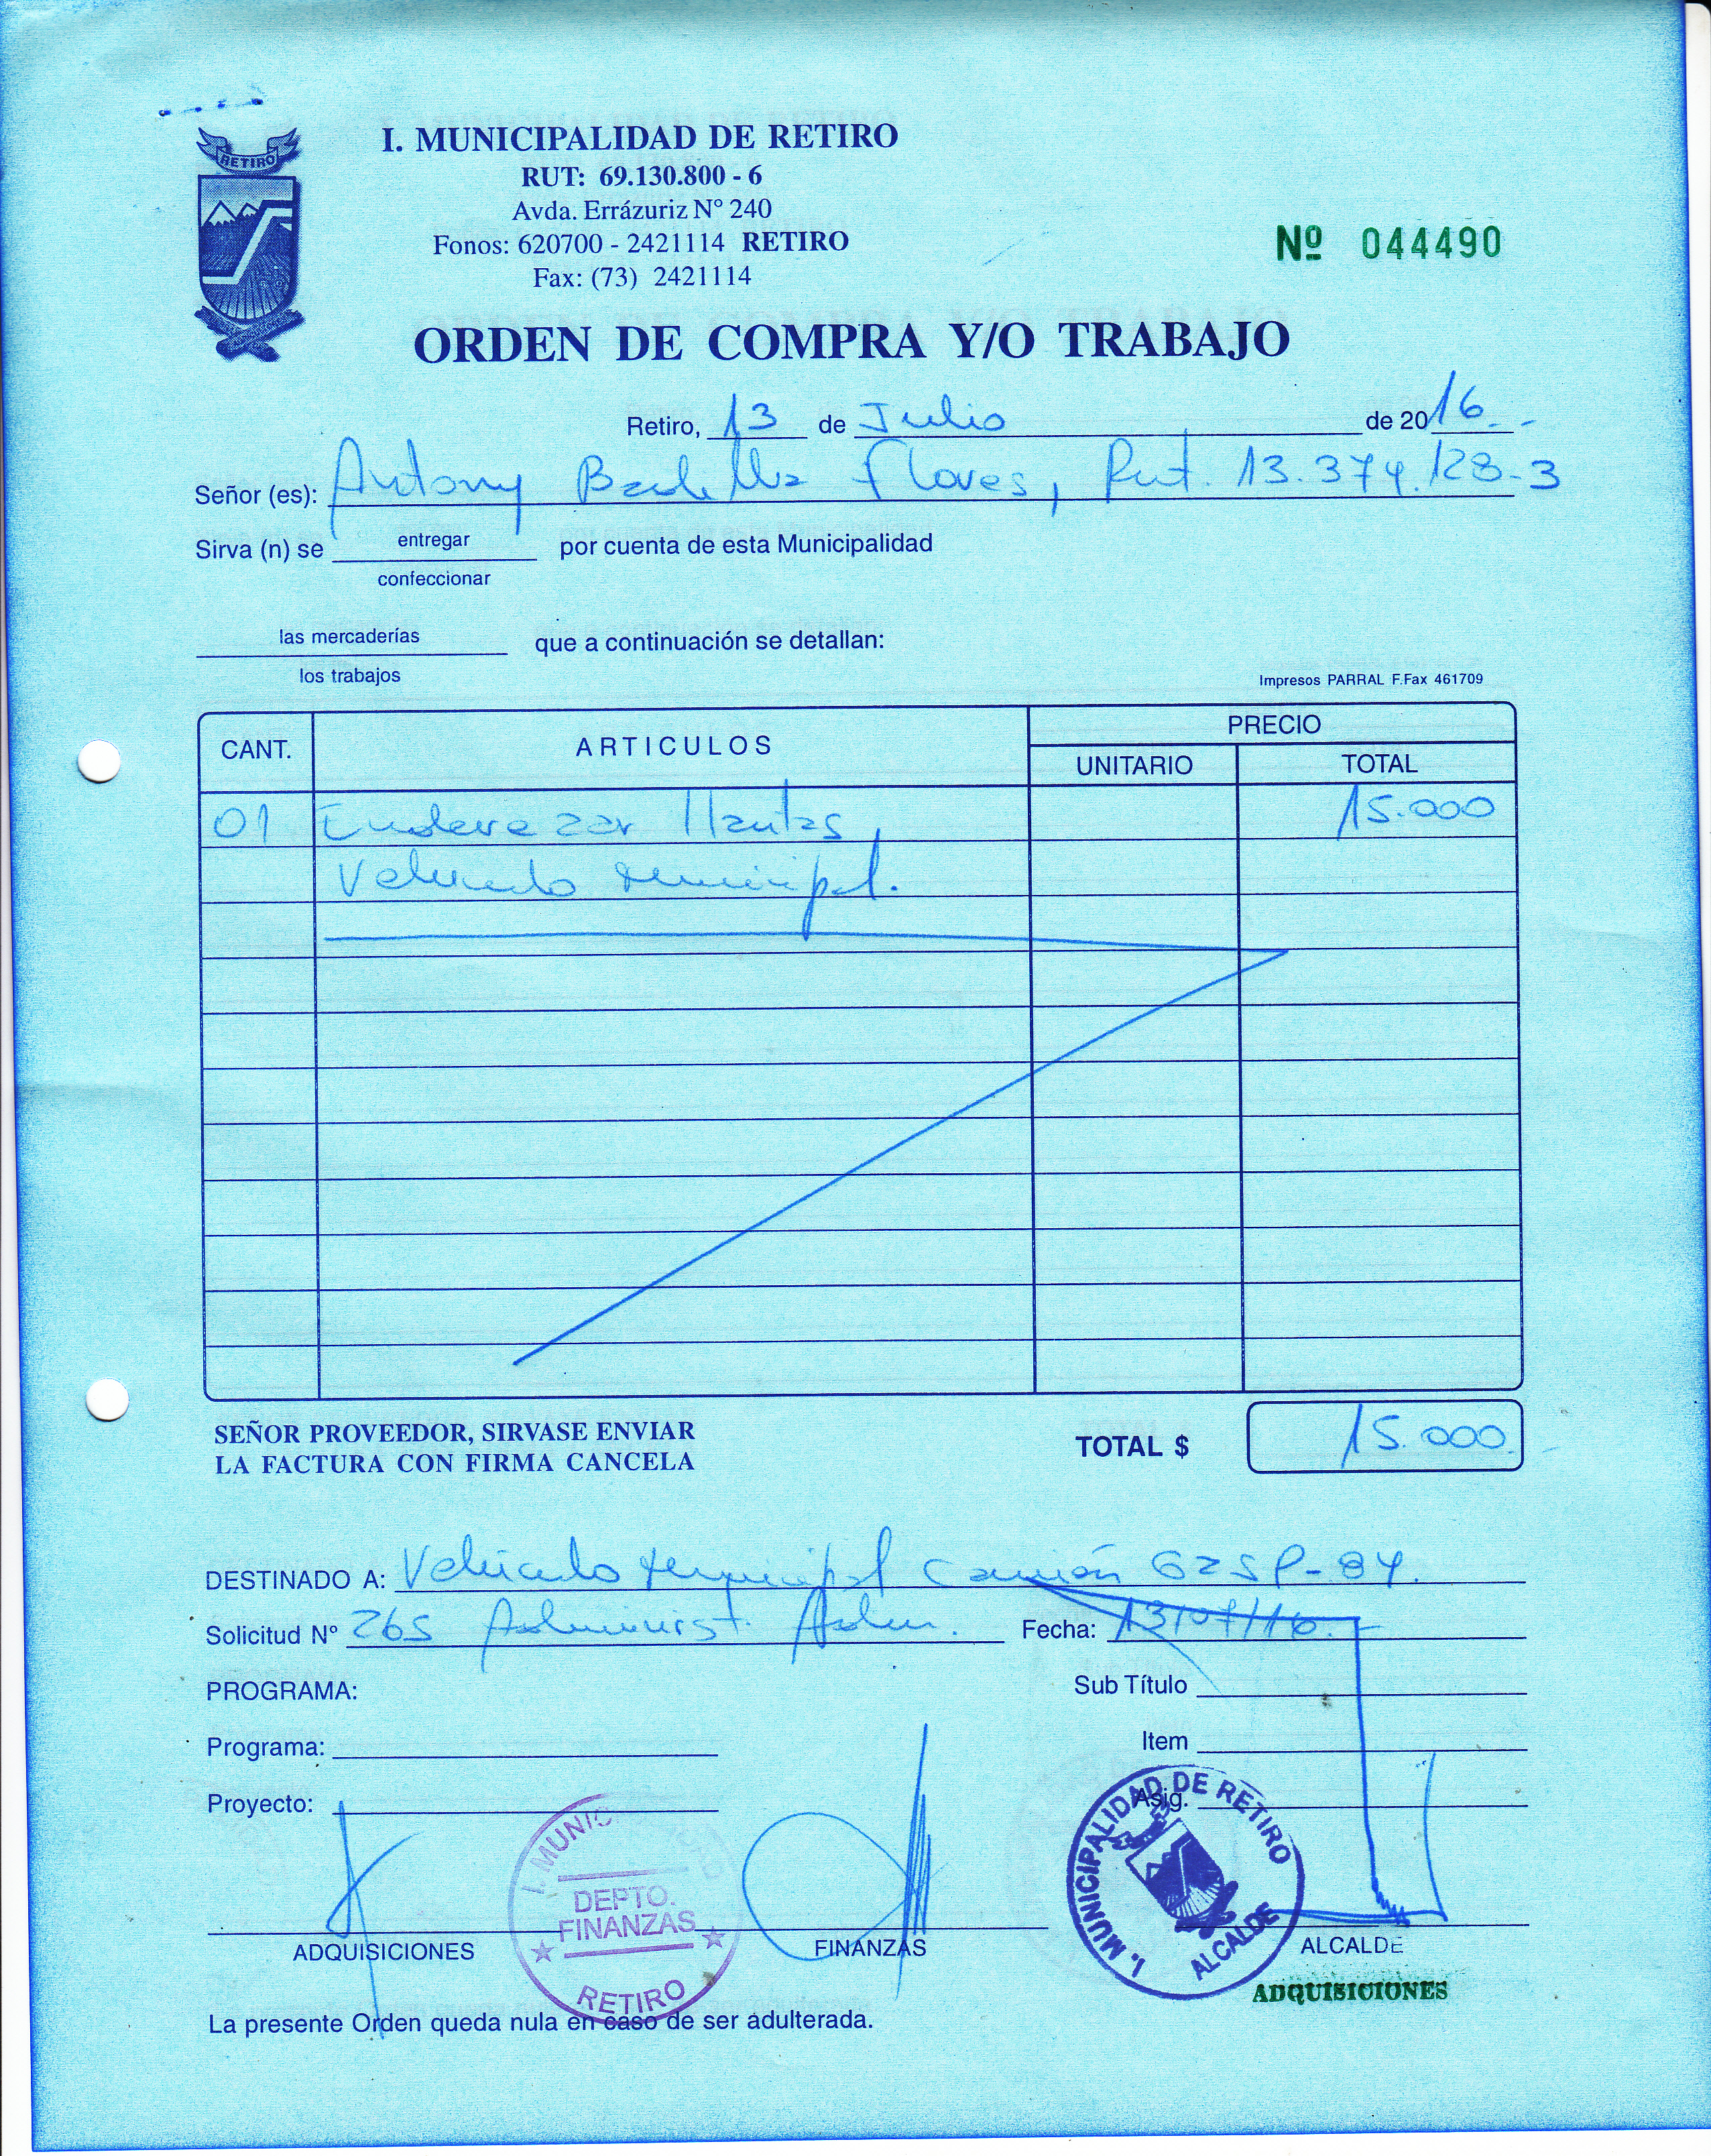 RETIRO
I. MUNICIPALIDAD DE RETIRO
RUT: 69.130.800 - 6
Avda. Errázuriz N° 240
Fonos: 620700 - 2421114 RETIRO
Fax: (73) 2421114
Nº 044490
ORDEN DE COMPRA Y/O TRABAJO
Retiro, 13 de Julio de 2016.-
Señor (es): Antony Flores, Rut. 13.374.128-3
Sirva (n) se entregar por cuenta de esta Municipalidad
confeccionar
las mercaderías que a continuación se detallan:
los trabajos
Impresos PARRAL F.Fax 461709
CANT. ARTICULOS PRECIO
UNITARIO TOTAL
01 Enderezar llantas, 15.000
Vehiculo Municipal.
SEÑOR PROVEEDOR, SIRVASE ENVIAR
LA FACTURA CON FIRMA CANCELA
TOTAL $ 15.000.
DESTINADO A: Vehiculo Municipal Camión GZSP-84.
Solicitud Nº 265 Administ. Adm. Fecha: 13/07/16.-
PROGRAMA: Sub Título
Programa: Item
Proyecto: Asig.
I. MUNIC
DEPTO.
FINANZAS
RETIRO
I. MUNICIPALIDAD DE RETIRO
ALCALDE
ADQUISICIONES FINANZAS ALCALDE
ADQUISICIONES
La presente Orden queda nula en caso de ser adulterada.